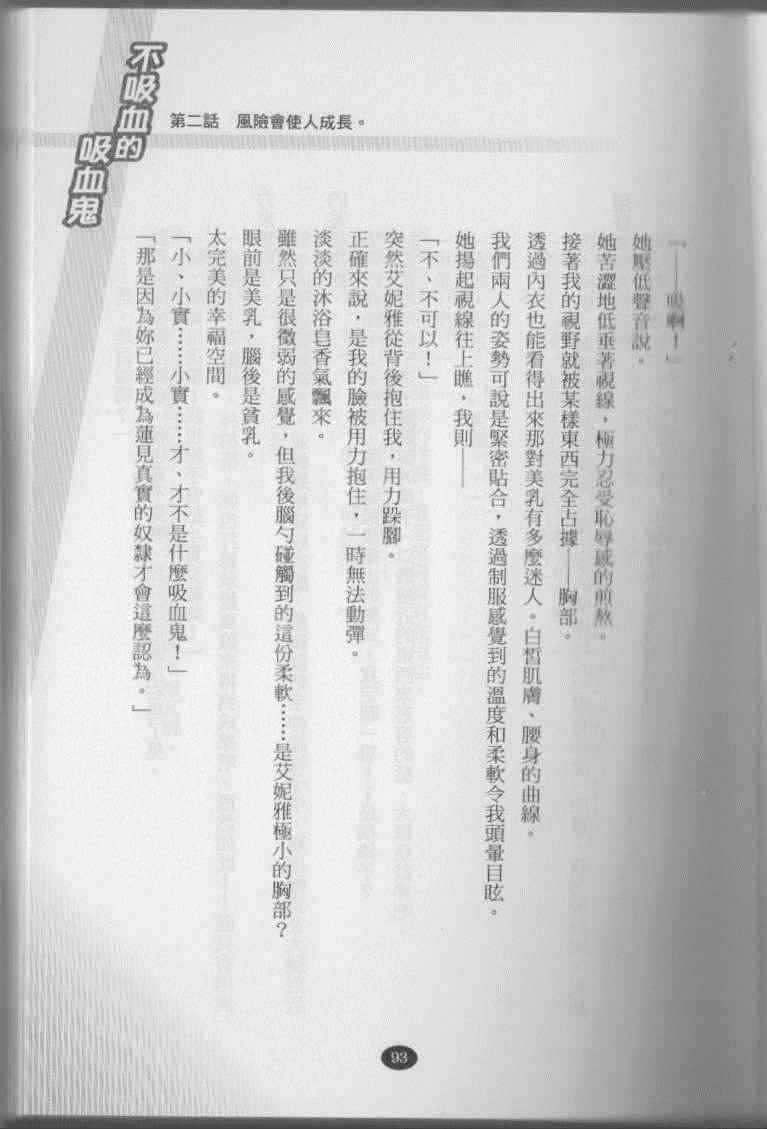 不吸血的
吸血鬼
第二話　風險會使人成長。
她壓低聲音說。
她苦澀地低垂著視線，極力忍受恥辱感的煎熬。
接著我的視野就被某樣東西完全占據——胸部。
透過內衣也能看得出來那對美乳有多麼迷人。白皙肌膚、腰身的曲線。
我們兩人的姿勢可說是緊密貼合，透過制服感覺到的溫度和柔軟令我頭暈目眩。
她揚起視線往上瞧，我則——
「不、不可以！」
突然艾妮雅從背後抱住我，用力跺腳。
正確來說，是我的臉被用力抱住，一時無法動彈。
淡淡的沐浴皂香氣飄來。
雖然只是很微弱的感覺，但我後腦勺碰觸到的這份柔軟……是艾妮雅極小的胸部？
眼前是美乳，腦後是貧乳。
太完美的幸福空間。
「小、小實……小實……才、才不是什麼吸血鬼！」
「那是因為妳已經成為蓮見真實的奴隸才會這麼認為。」
93